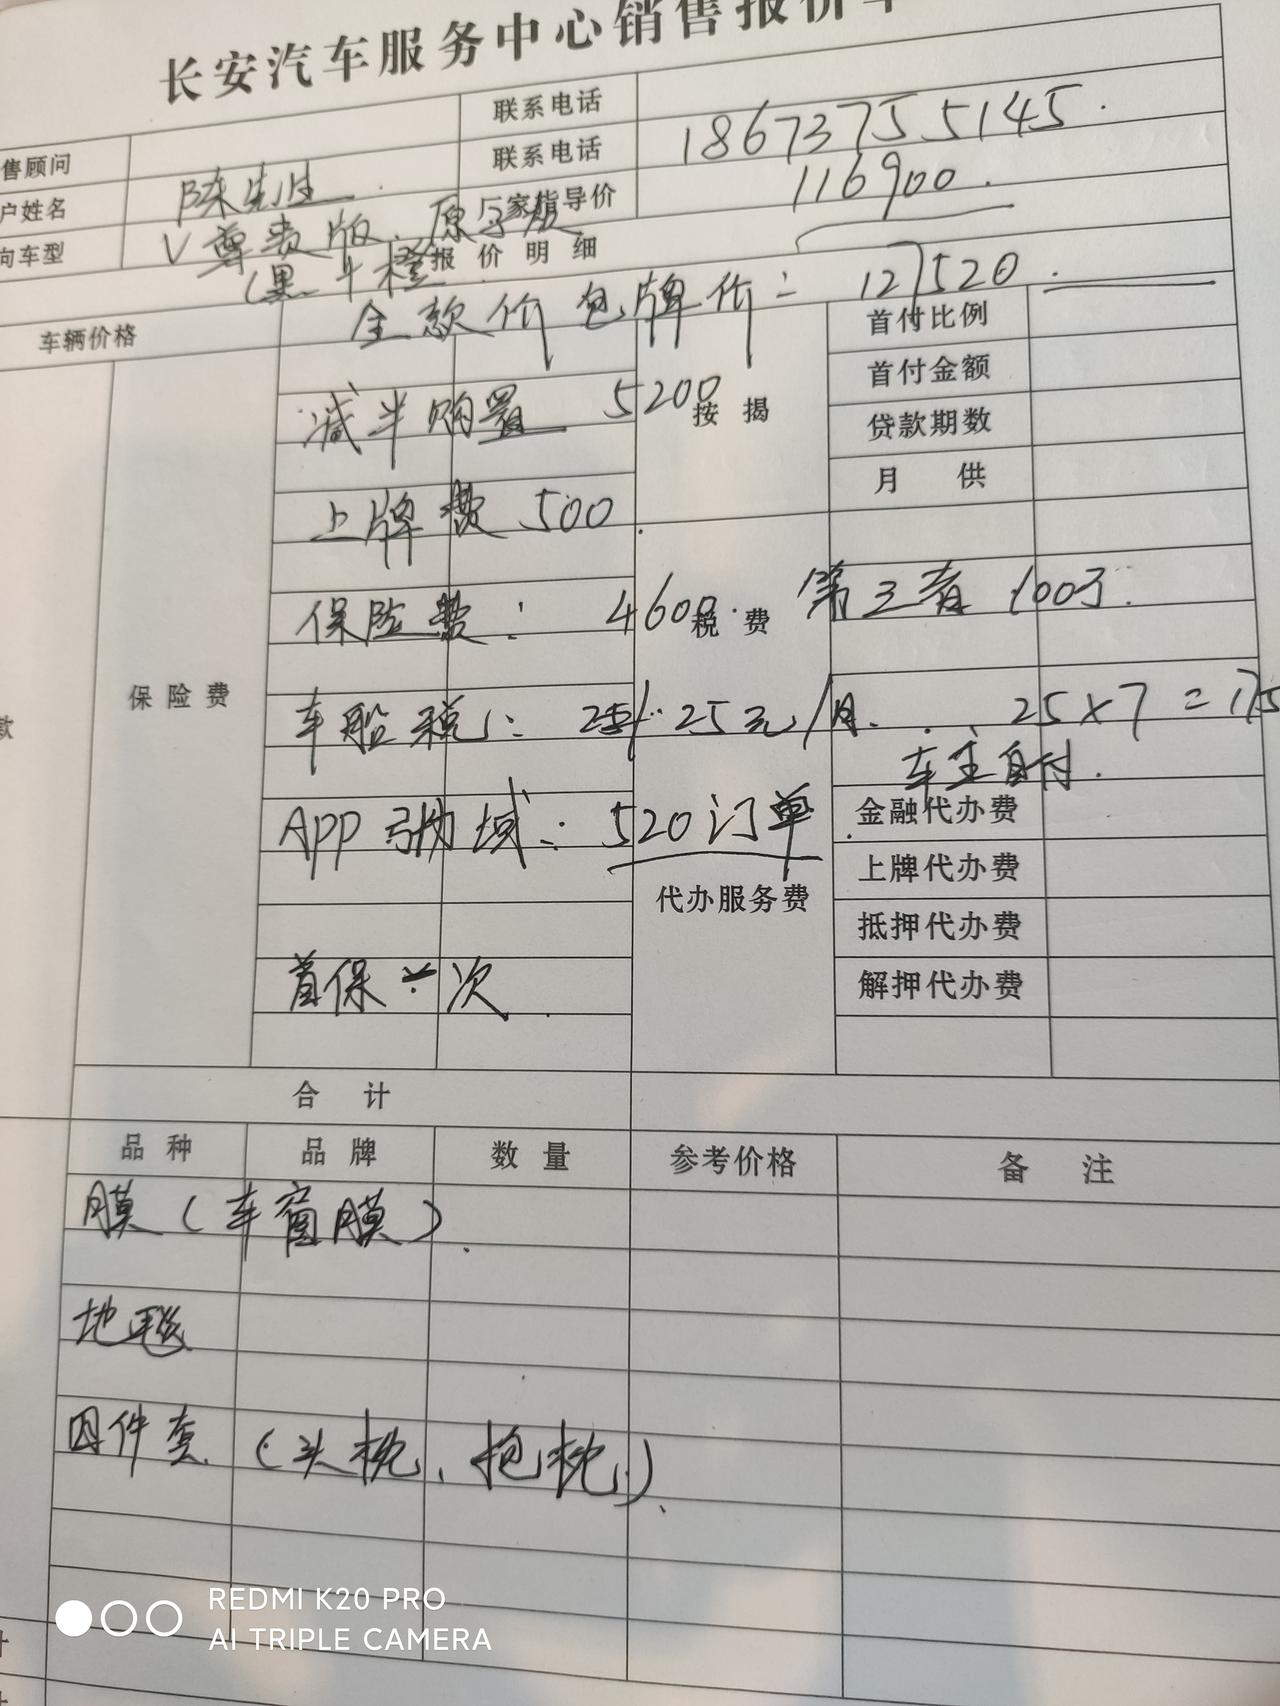 长安汽车服务中心销售报价单
联系电话
售顾问 联系电话 18673755145.
户姓名 陈先生. 厂家指导价 116900.
向车型 V尊贵版. 原厂版
(黑+橙 报价明细
全款价包牌价: 127520.
车辆价格 首付比例
减半购置 5200 按揭 首付金额
贷款期数
上牌费 500. 月 供
保险费: 4600. 税费 第三者 100万.
保险费
款 车船税: 25元/月. 25×7=175
车主自付.
APP引力域: 520订单. 金融代办费
代办服务费 上牌代办费
抵押代办费
首保一次. 解押代办费
合 计
品种 品牌 数量 参考价格 备 注
膜(车窗膜).
地毯
四件套. (头枕、抱枕)、
计
REDMI K20 PRO
AI TRIPLE CAMERA